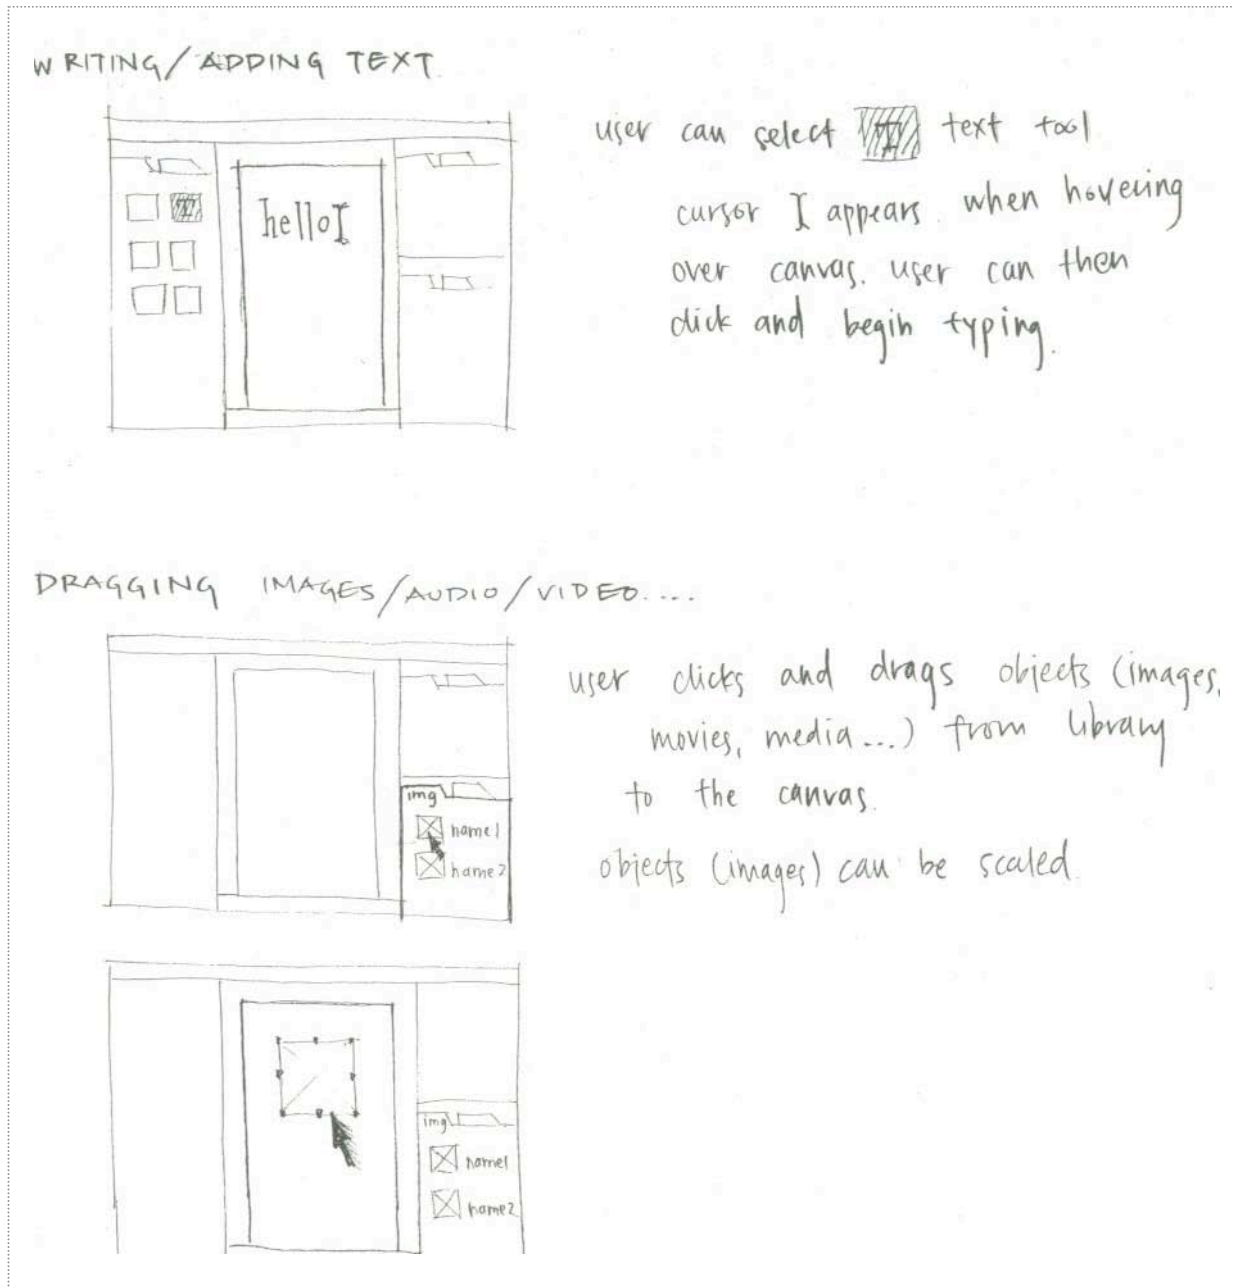 WRITING/ADDING TEXT
hello
user can select text tool
cursor I appears when hovering
over canvas. user can then
click and begin typing.
DRAGGING IMAGES/AUDIO/VIDEO....
img
name1
name2
user clicks and drags objects (images,
movies, media...) from library
to the canvas.
objects (images) can be scaled.
img
name1
name2